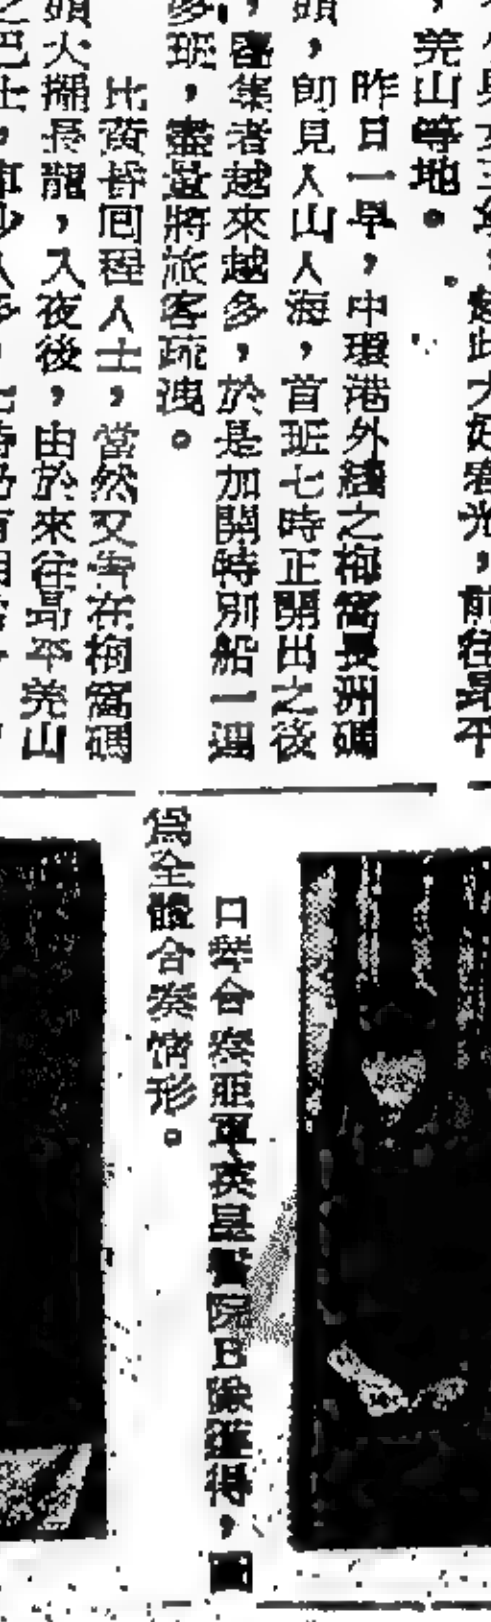 趁此大好春光，前往昂平
，羌山等地。
昨日一早，中環港外綫之梅窩長洲碼
頭，卽見人山人海，首班七時正開出之後
，客集者越來越多，於是加開特別船一連
多班，儘量將旅客疏洩。
比黃昏回程人士，當然又齊在梅窩碼
頭大擺長龍，入夜後，由於來往昂平羌山
之巴士，車少人多，七時仍有
口琴合奏亞軍英皇書院B隊獲得，圖
爲全體合奏情形。